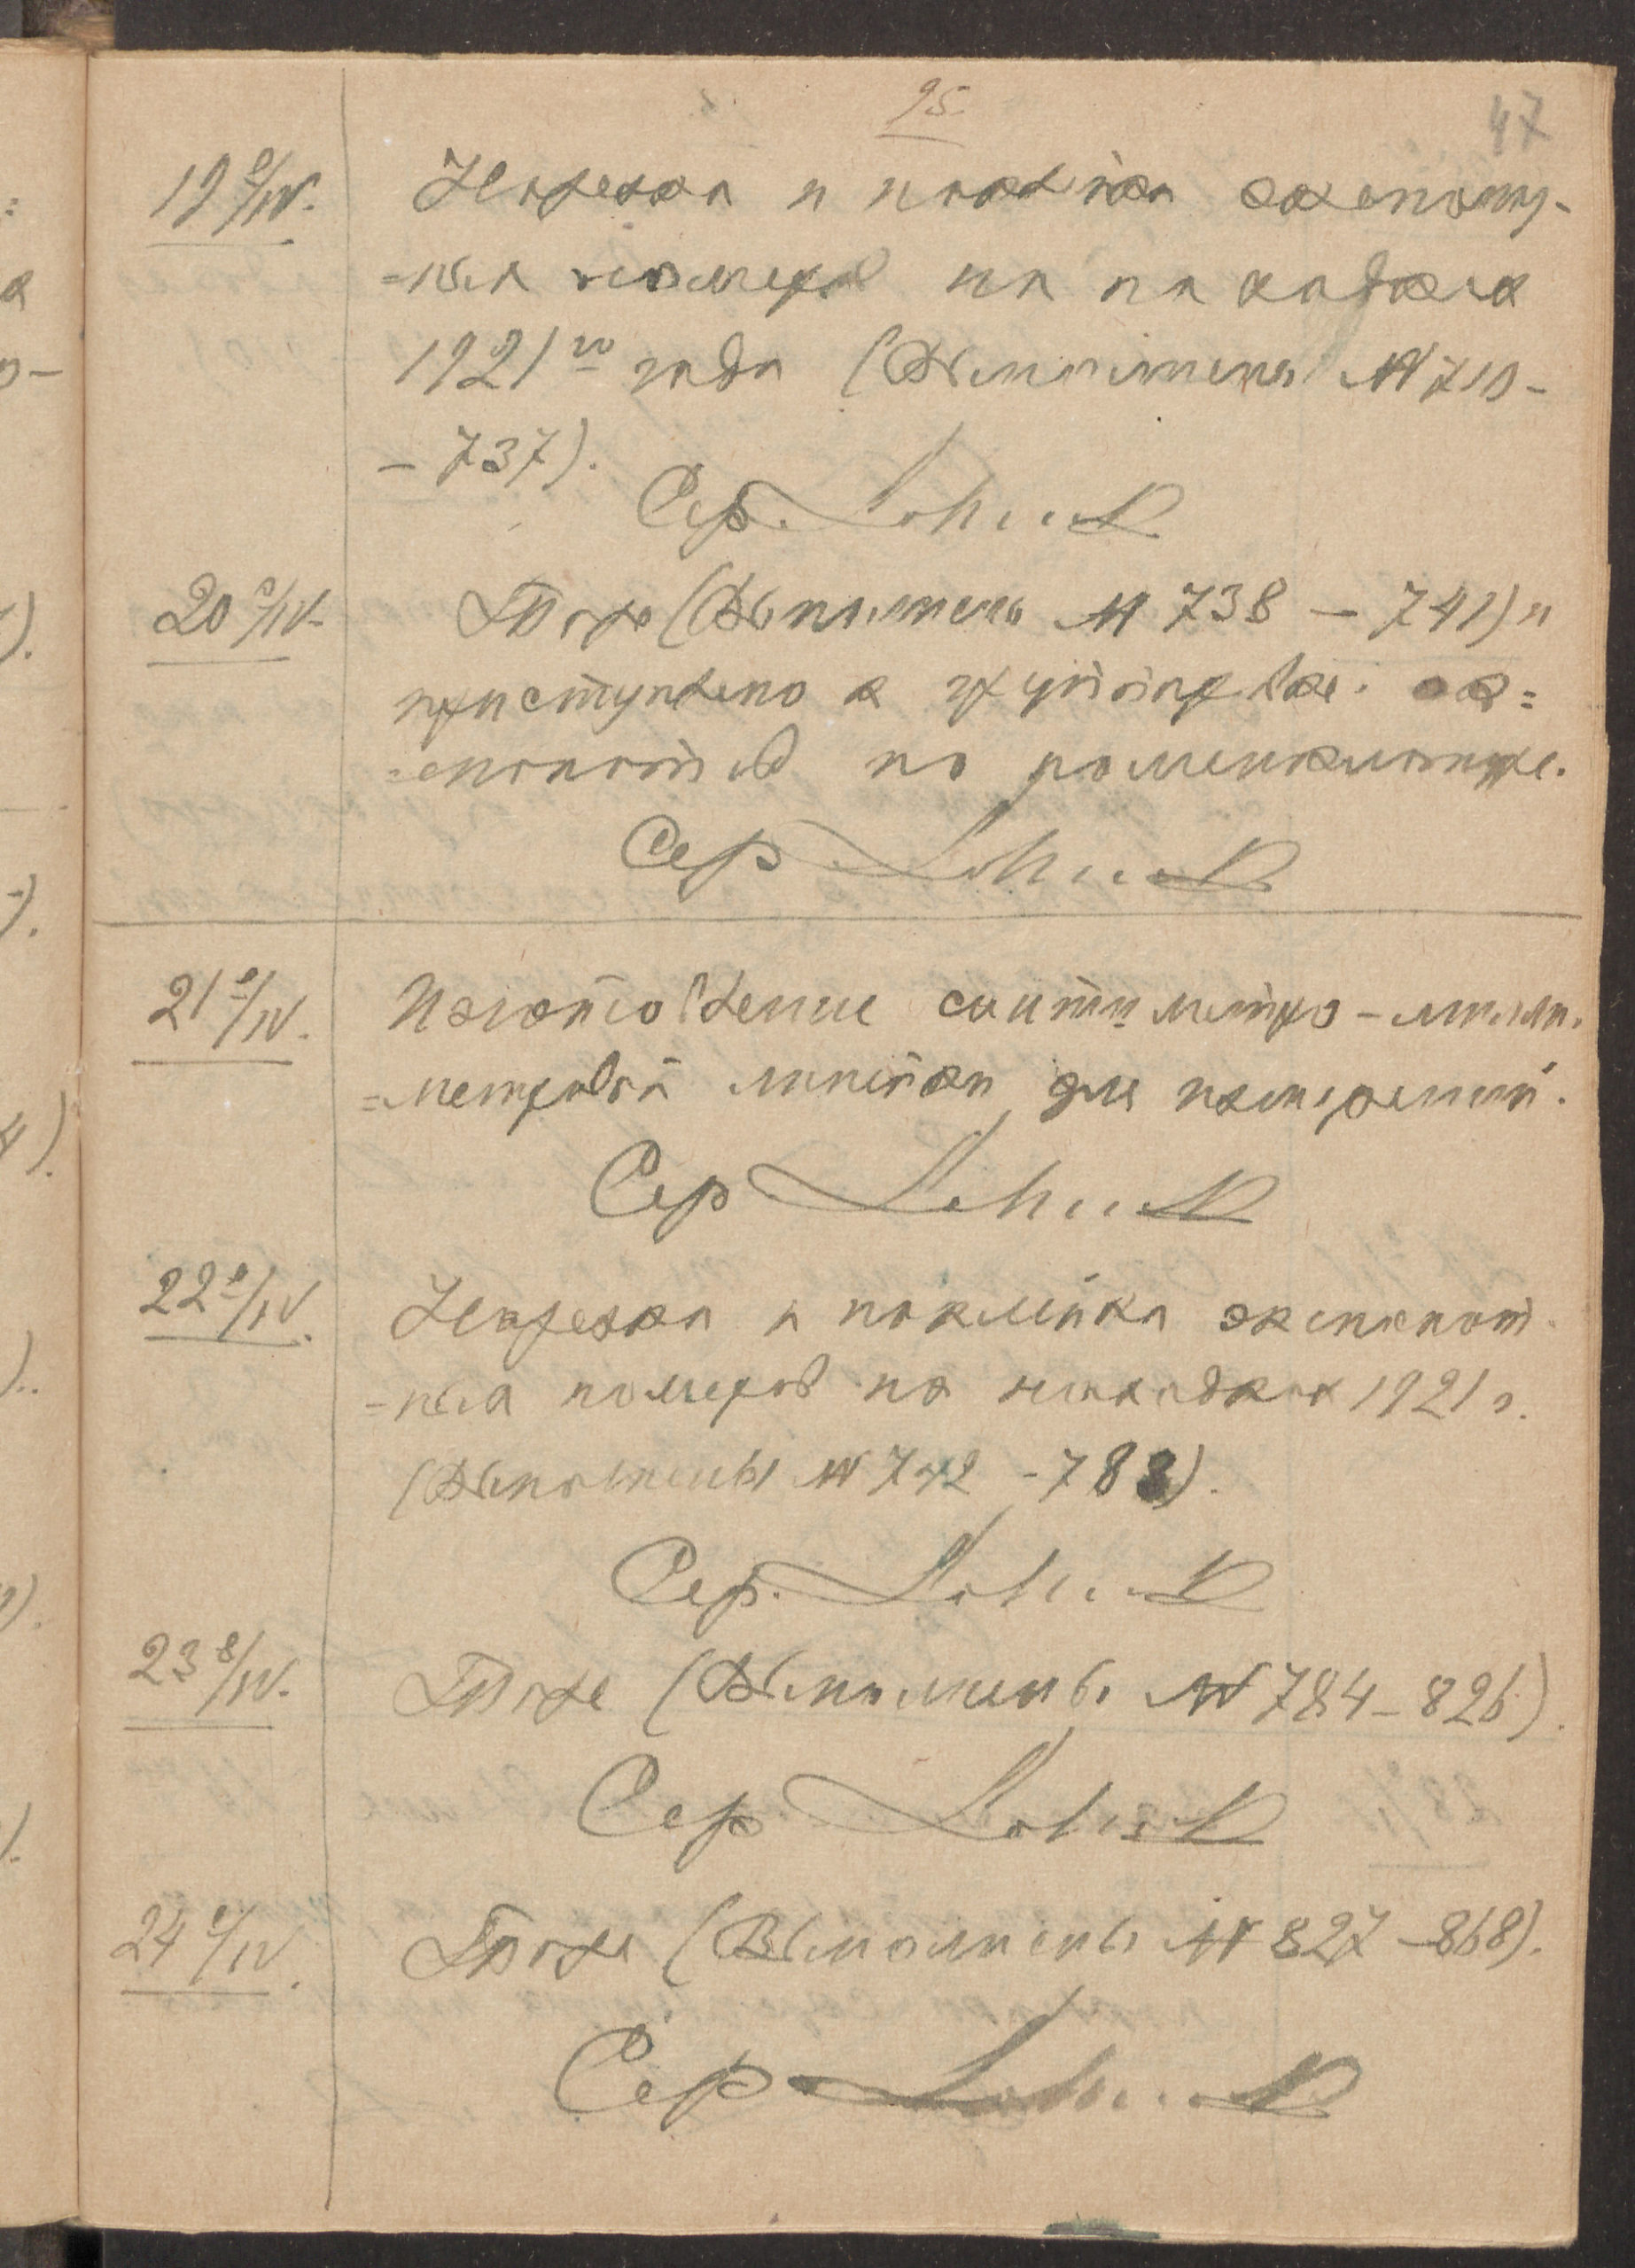 95.
47
19 0/IV. Нарезка и наклейка экспонат-
=ных номеров на находках
1921го года (Выполнены № 710-
- 737).
Сер.
20 0/IV. Тоже (Выполнены № 738 - 741) и
приступлено к группировке эк=
=спонатов по номенклатуре.
Сер
21 0/IV. Изготовление сантиметро-милли-
=метровой линейки для измерений.
Сер
22 0/IV. Нарезка и наклейка экспонат-
=ных номеров на находках 1921 г.
(Выполнены № 742 - 783).
Сер.
23 0/IV. Тоже (Выполнены № 784 - 826).
Сер
24 0/IV. Тоже (Выполнены № 827 - 868).
Сер